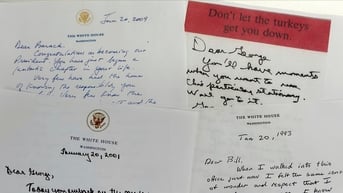 THE WHITE HOUSE
WASHINGTON
Jan 20, 2009
Dear Barack,
Congratulations on becoming our
President. You have just begun a
fantastic chapter in your life.
Very few have had the honor
of knowing the responsibility you
Don't let the turkeys
get you down.
Dear George
You'll have moments
when you want to use
this particular stationery.
Well go to it.
THE WHITE HOUSE
WASHINGTON
January 20, 2001
Dear George,
THE WHITE HOUSE
WASHINGTON
Jan 20, 1993
Dear Bill,
When I walked into this
office just now I felt the same sense
of wonder and respect that I